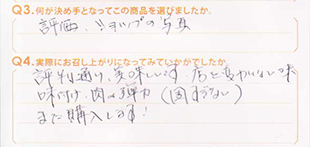 Q3.何が決め手となってこの商品を選びましたか。
評価、ショップの写真
Q4.実際にお召し上がりになってみていかがでしたか。
評判通り、美味しいです。店と変わらない味
味付け、肉の弾力(固すぎない)
また購入します!